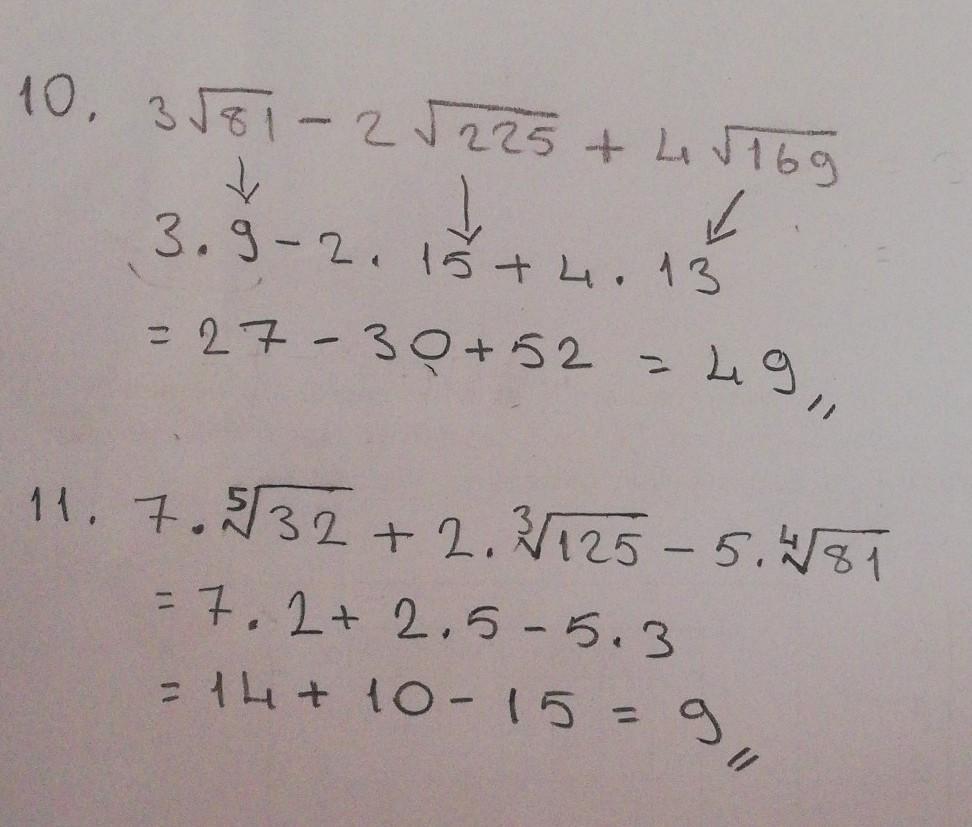 10. 3√81 - 2√225 + 4√169
↓ ↓ ↙
3.9 - 2.15 + 4.13
= 27 - 30 + 52 = 49,,
11. 7.⁵√32 + 2.³√125 - 5.⁴√81
= 7.2 + 2.5 - 5.3
= 14 + 10 - 15 = 9,,